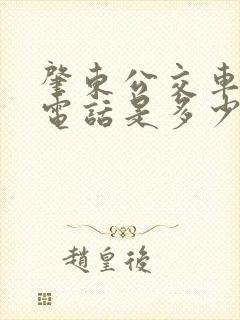 肇東公交車
電話是多少
趙皇後